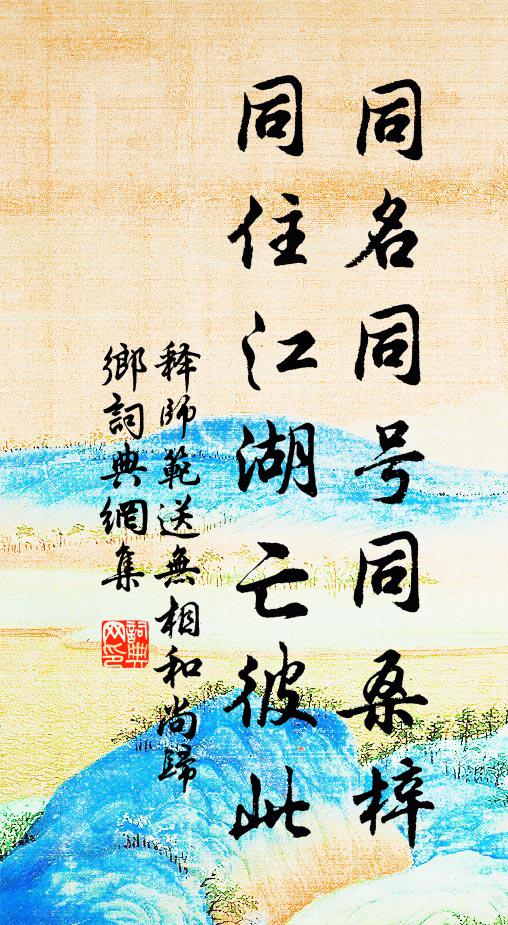 同名同号同桑梓
同住江湖亡彼此
释师範送無相和尚歸
鄉詞典網集
詞典网印